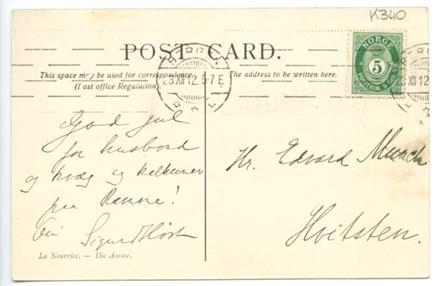 K340
POST CARD.
This space may be used for correspondence.
(Post office Regulation).
The address to be written here.
NORGE
5
BERGEN
23 XII 12. 5-7 E
XII 12
God jul
for husbond
og kvæg og kalkuner
paa Ramme!
Sigurd Høst
Hr. Edvard Munch
Hvitsten.
La Nourrice. — Die Amme.